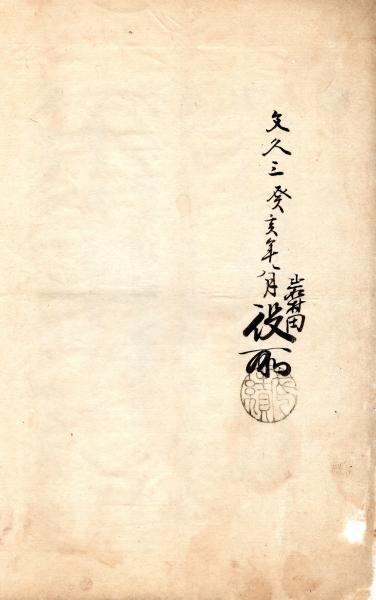 文久三癸亥年八月
岩村田
役所